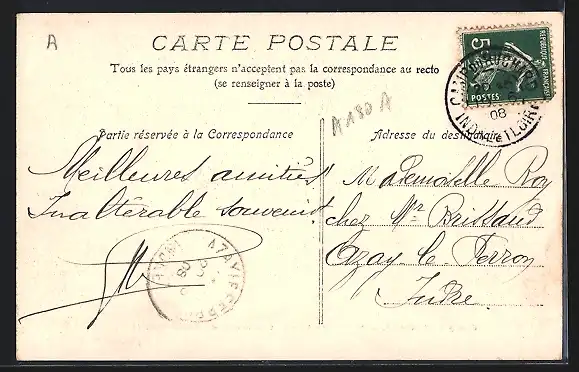 A
CARTE POSTALE
Tous les pays étrangers n'acceptent pas la correspondance au recto
(se renseigner à la poste)
5
POSTES
RÉPUBLIQUE FRANÇAISE
08
INDRE & LOIRE
A 180 A
Partie réservée à la Correspondance
Adresse du destinataire
Meilleures amitiés
Inaltérable souvenir
Mademoiselle Roy
chez Mr Brissaud
Azay le Ferron
Indre.
AZAY LE FERRON
08